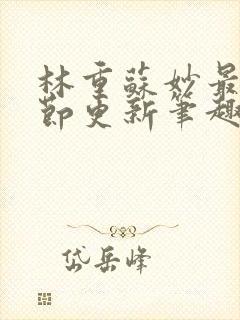 林重蘇妙最
節更新筆趣
岱岳峰